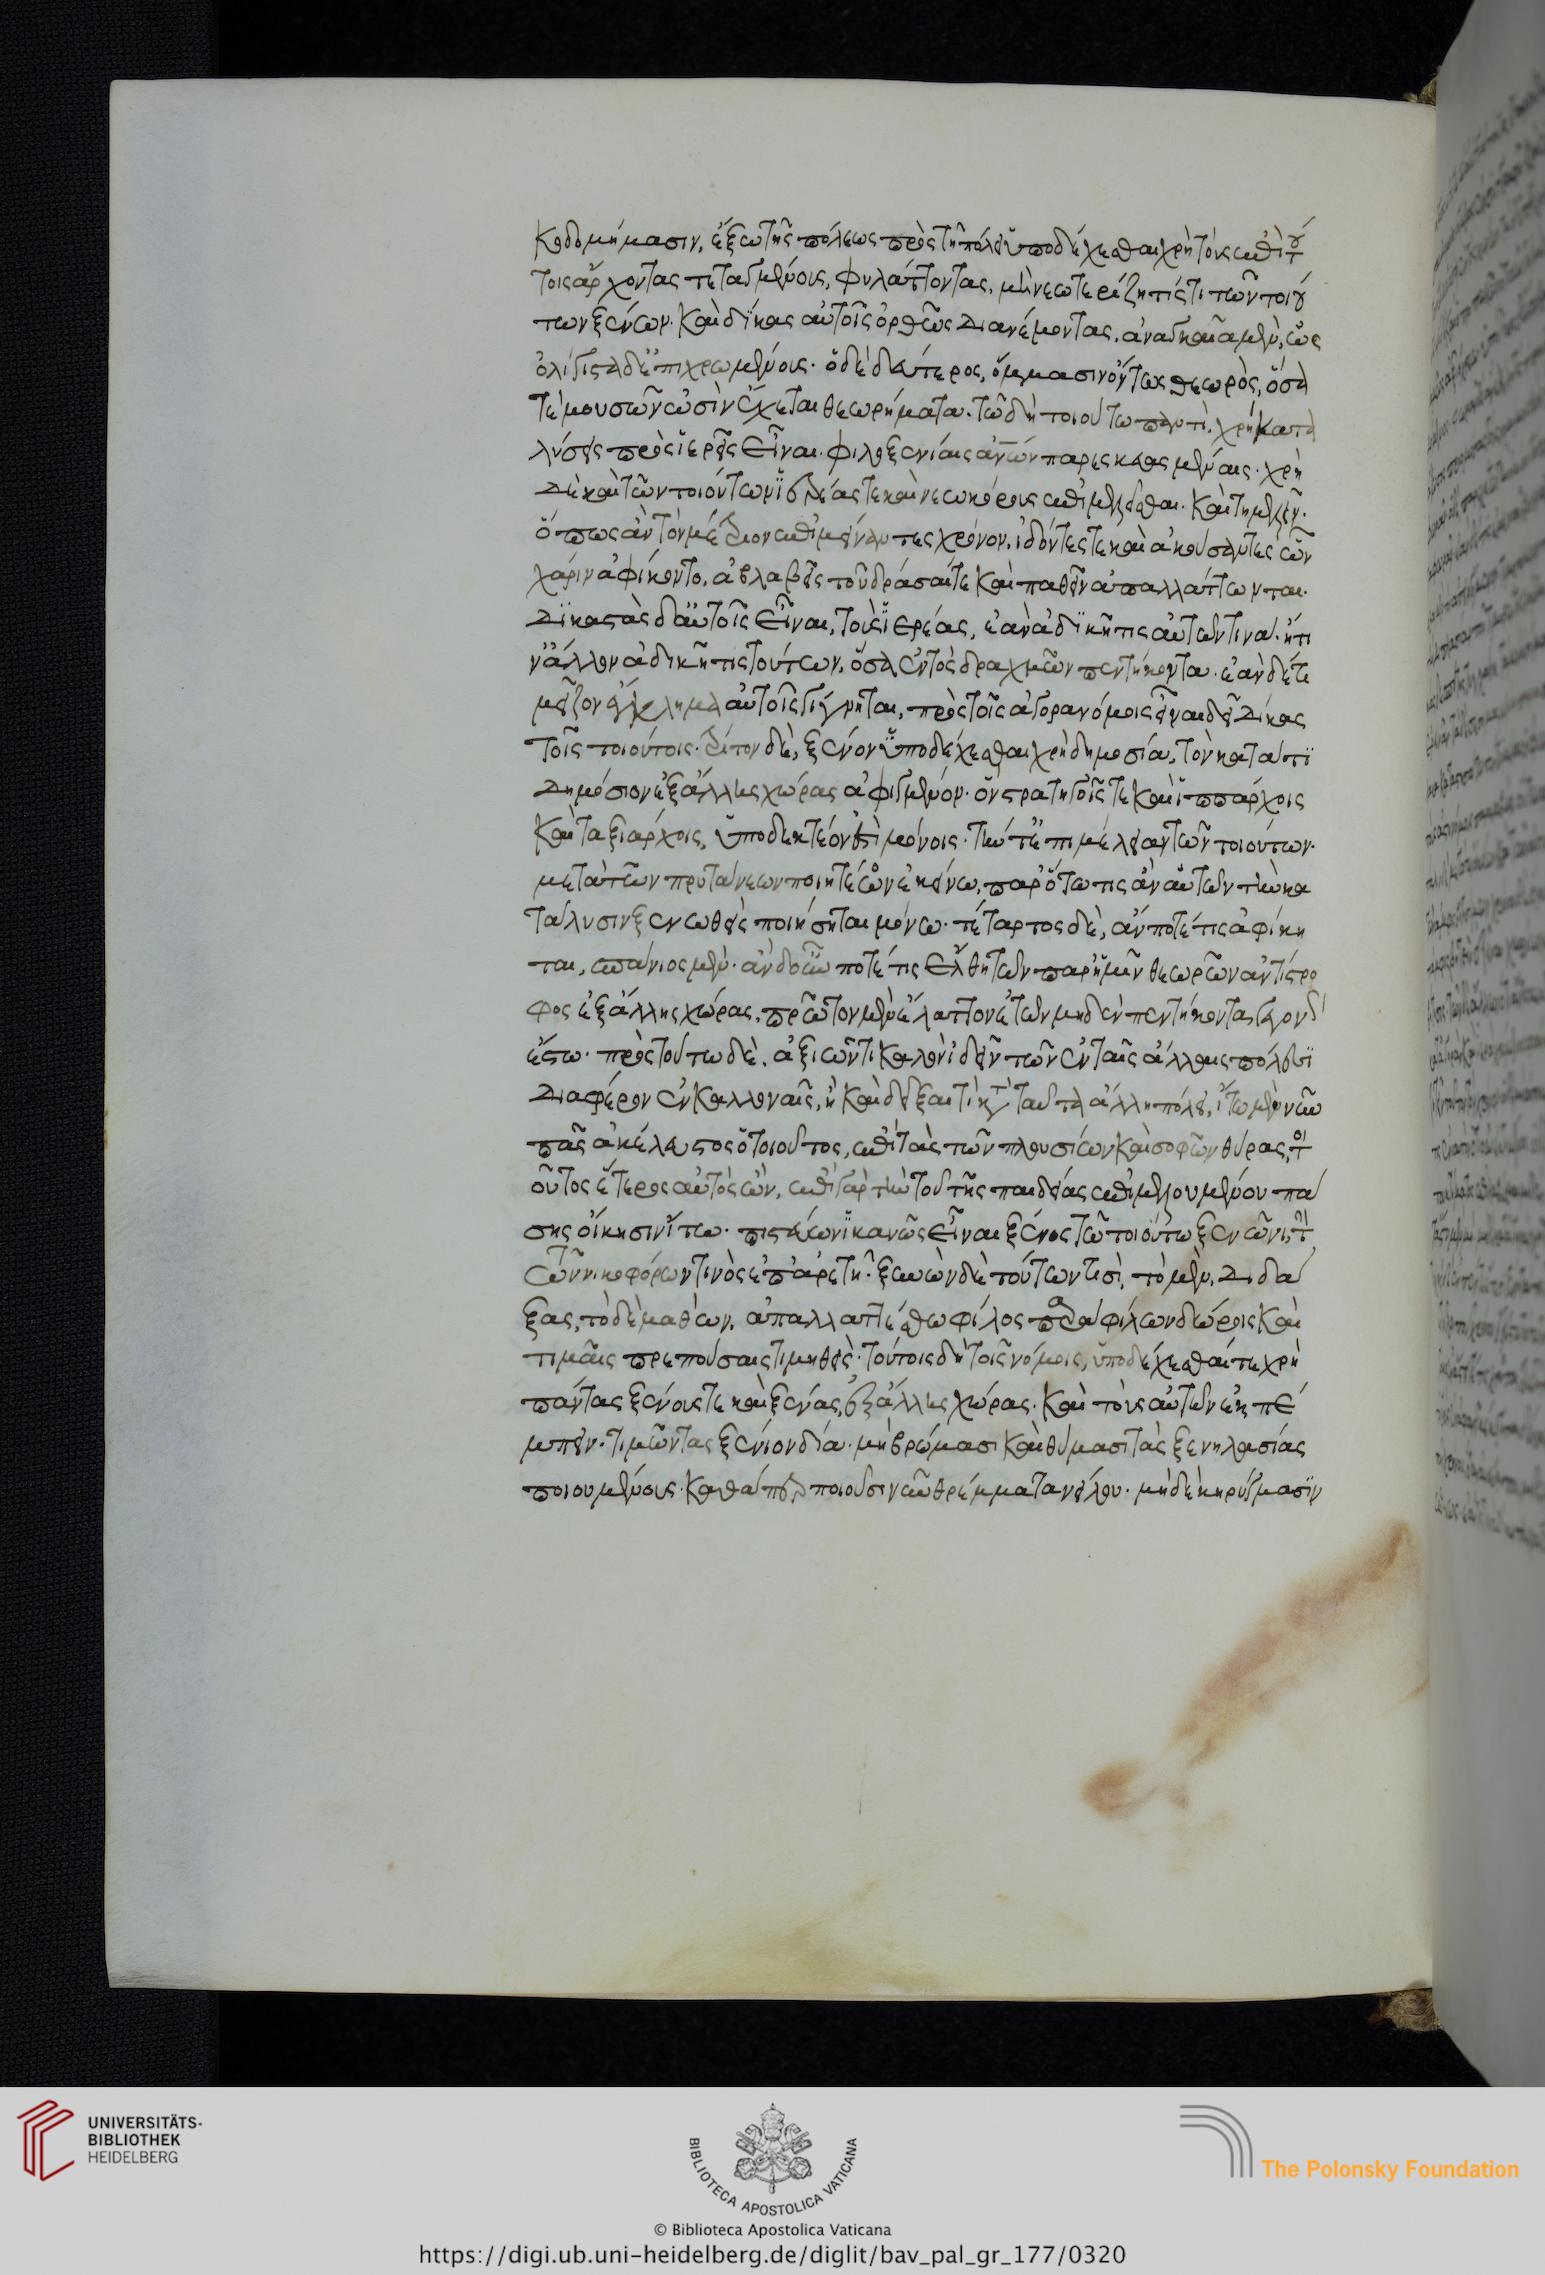 κοδομήμασιν, ἔξω τῆς πόλεως πρὸς τῇ πόλει ὑποδέχεσθαι χρὴ τοὺς ἐπὶ τού
τοις ἄρχοντας τεταγμένους, φυλάττοντας, μὴ νεωτερίζῃ τίς τι τῶν τοιού
των ξένων. καὶ δίκας αὐτοῖς ὀρθῶς διανέμοντας. ἀναγκαῖα μὲν, ὡς
ὀλίγιστα δ' ἐπιχρωμένους. ὁ δὲ δεύτερος, ὄμμασιν ὄντως θεωρὸς, ὅσα
τε μουσῶν ὠσὶν ἔχεται θεωρήματα. τῷ δὴ τοιούτῳ παντὶ, χρὴ κατα
λύσεις πρὸς ἱεροῖς εἶναι. φιλοξενίαις ἀν̅ω̅ν̅ παρεσκευασμέναις. χρὴ
δὲ καὶ τῶν τοιούτων ἱερέας τε καὶ νεωκόρους ἐπιμελεῖσθαι. καὶ τημελεῖν.
ὅπως ἂν τὸν μέτριον ἐπιμείναντες χρόνον. ἰδόντες τε καὶ ἀκούσαντες ὧν
χάριν ἀφίκοντο. ἀβλαβεῖς τοῦ δράσαί τε καὶ παθεῖν ἀπαλλάττωνται.
δικαστὰς δ' αὐτοῖς εἶναι, τοὺς ἱερέας, ἐὰν ἀδικῇ τις αὐτῶν τινα. ἤ τι
ν' ἄλλον ἀδικῇ τις τούτων, ὅσα ἐντὸς δραχμῶν πεντήκοντα. ἐὰν δέ τε
μεῖζον ἔγκλημα αὐτοῖς γίγνηται, πρὸς τοῖς ἀγορανόμοις εἶναι δεῖ δίκας
τοῖς τοιούτοις. τρίτον δὲ, ξένον ὑποδέχεσθαι χρὴ δημοσίᾳ, τὸν κατά τι
δημόσιον ἐξ ἄλλης χώρας ἀφιγμένον. ὃν στρατηγοῖς τε καὶ ἱππάρχοις
καὶ ταξιάρχοις, ὑποδεκτέον ἐστὶ μόνοις. τήν τ' ἐπιμέλειαν τῶν τοιούτων.
μετὰ τῶν πρυτάνεων ποιητέον ἐκείνῳ, παρ' ὅτῳ τις ἂν αὐτῶν τὴν κα
τάλυσιν ξενωθεὶς ποιήσηται μόνῳ. τέταρτος δὲ, ἄν ποτέ τις ἀφίκη
ται, σπάνιος μὲν. ἂν δ' οὖν ποτέ τις ἔλθῃ τῶν παρ' ἡμῖν θεωρῶν ἀντίστρο
φος ἐξ ἄλλης χώρας, πρῶτον μὲν ἔλαττον ἐτῶν μηδὲν πεντήκοντα γεγονὼς
ἔστω. πρὸς τούτῳ δὲ, ἀξιῶν τι καλὸν ἰδεῖν τῶν ἐν ταῖς ἄλλαις πόλεσι
διαφέρον ἐν καλλοναῖς, ἢ καὶ δεῖξαί τι κατὰ ταῦτα ἄλλῃ πόλει, ἴτω μὲν νῦν
πᾶς ἀκέλευστος ὁ τοιοῦτος, ἐπὶ τὰς τῶν πλουσίων καὶ σοφῶν θύρας, τοι
οῦτος ἕτερος αὐτὸς ὤν, ἐπὶ γὰρ τὴν τοῦ τῆς παιδείας ἐπιμελουμένου πά
σης οἴκησιν ἴτω. πιστεύων ἱκανῶς εἶναι ξένος τῷ τοιούτῳ ξένων, ἢ τὴν
τῶν νικοφόρων τινὸς ἐπ' ἀρετῇ. ξυνὼν δὲ τούτων τισὶ, τὸ μὲν, διδά
ξας, τὸ δὲ μαθὼν, ἀπαλλαττέσθω φίλος παρὰ φίλων δώροις καὶ
τιμαῖς πρεπούσαις τιμηθείς. τούτοις δὴ τοῖς νόμοις, ὑποδέχεσθαί τε χρὴ
πάντας ξένους τε καὶ ξένας, ἐξ ἄλλης χώρας. καὶ τοὺς αὐτῶν ἐκπέ
μπειν. τιμῶντας ξένιον δία. μὴ βρώμασι καὶ θύμασι τὰς ξενηλασίας
ποιουμένους. καθάπερ ποιοῦσιν νῦν θρέμματα νείλου. μηδὲ κηρύγμασιν
UNIVERSITÄTS-
BIBLIOTHEK
HEIDELBERG
BIBLIOTECA APOSTOLICA VATICANA
The Polonsky Foundation
© Biblioteca Apostolica Vaticana
https://digi.ub.uni-heidelberg.de/diglit/bav_pal_gr_177/0320